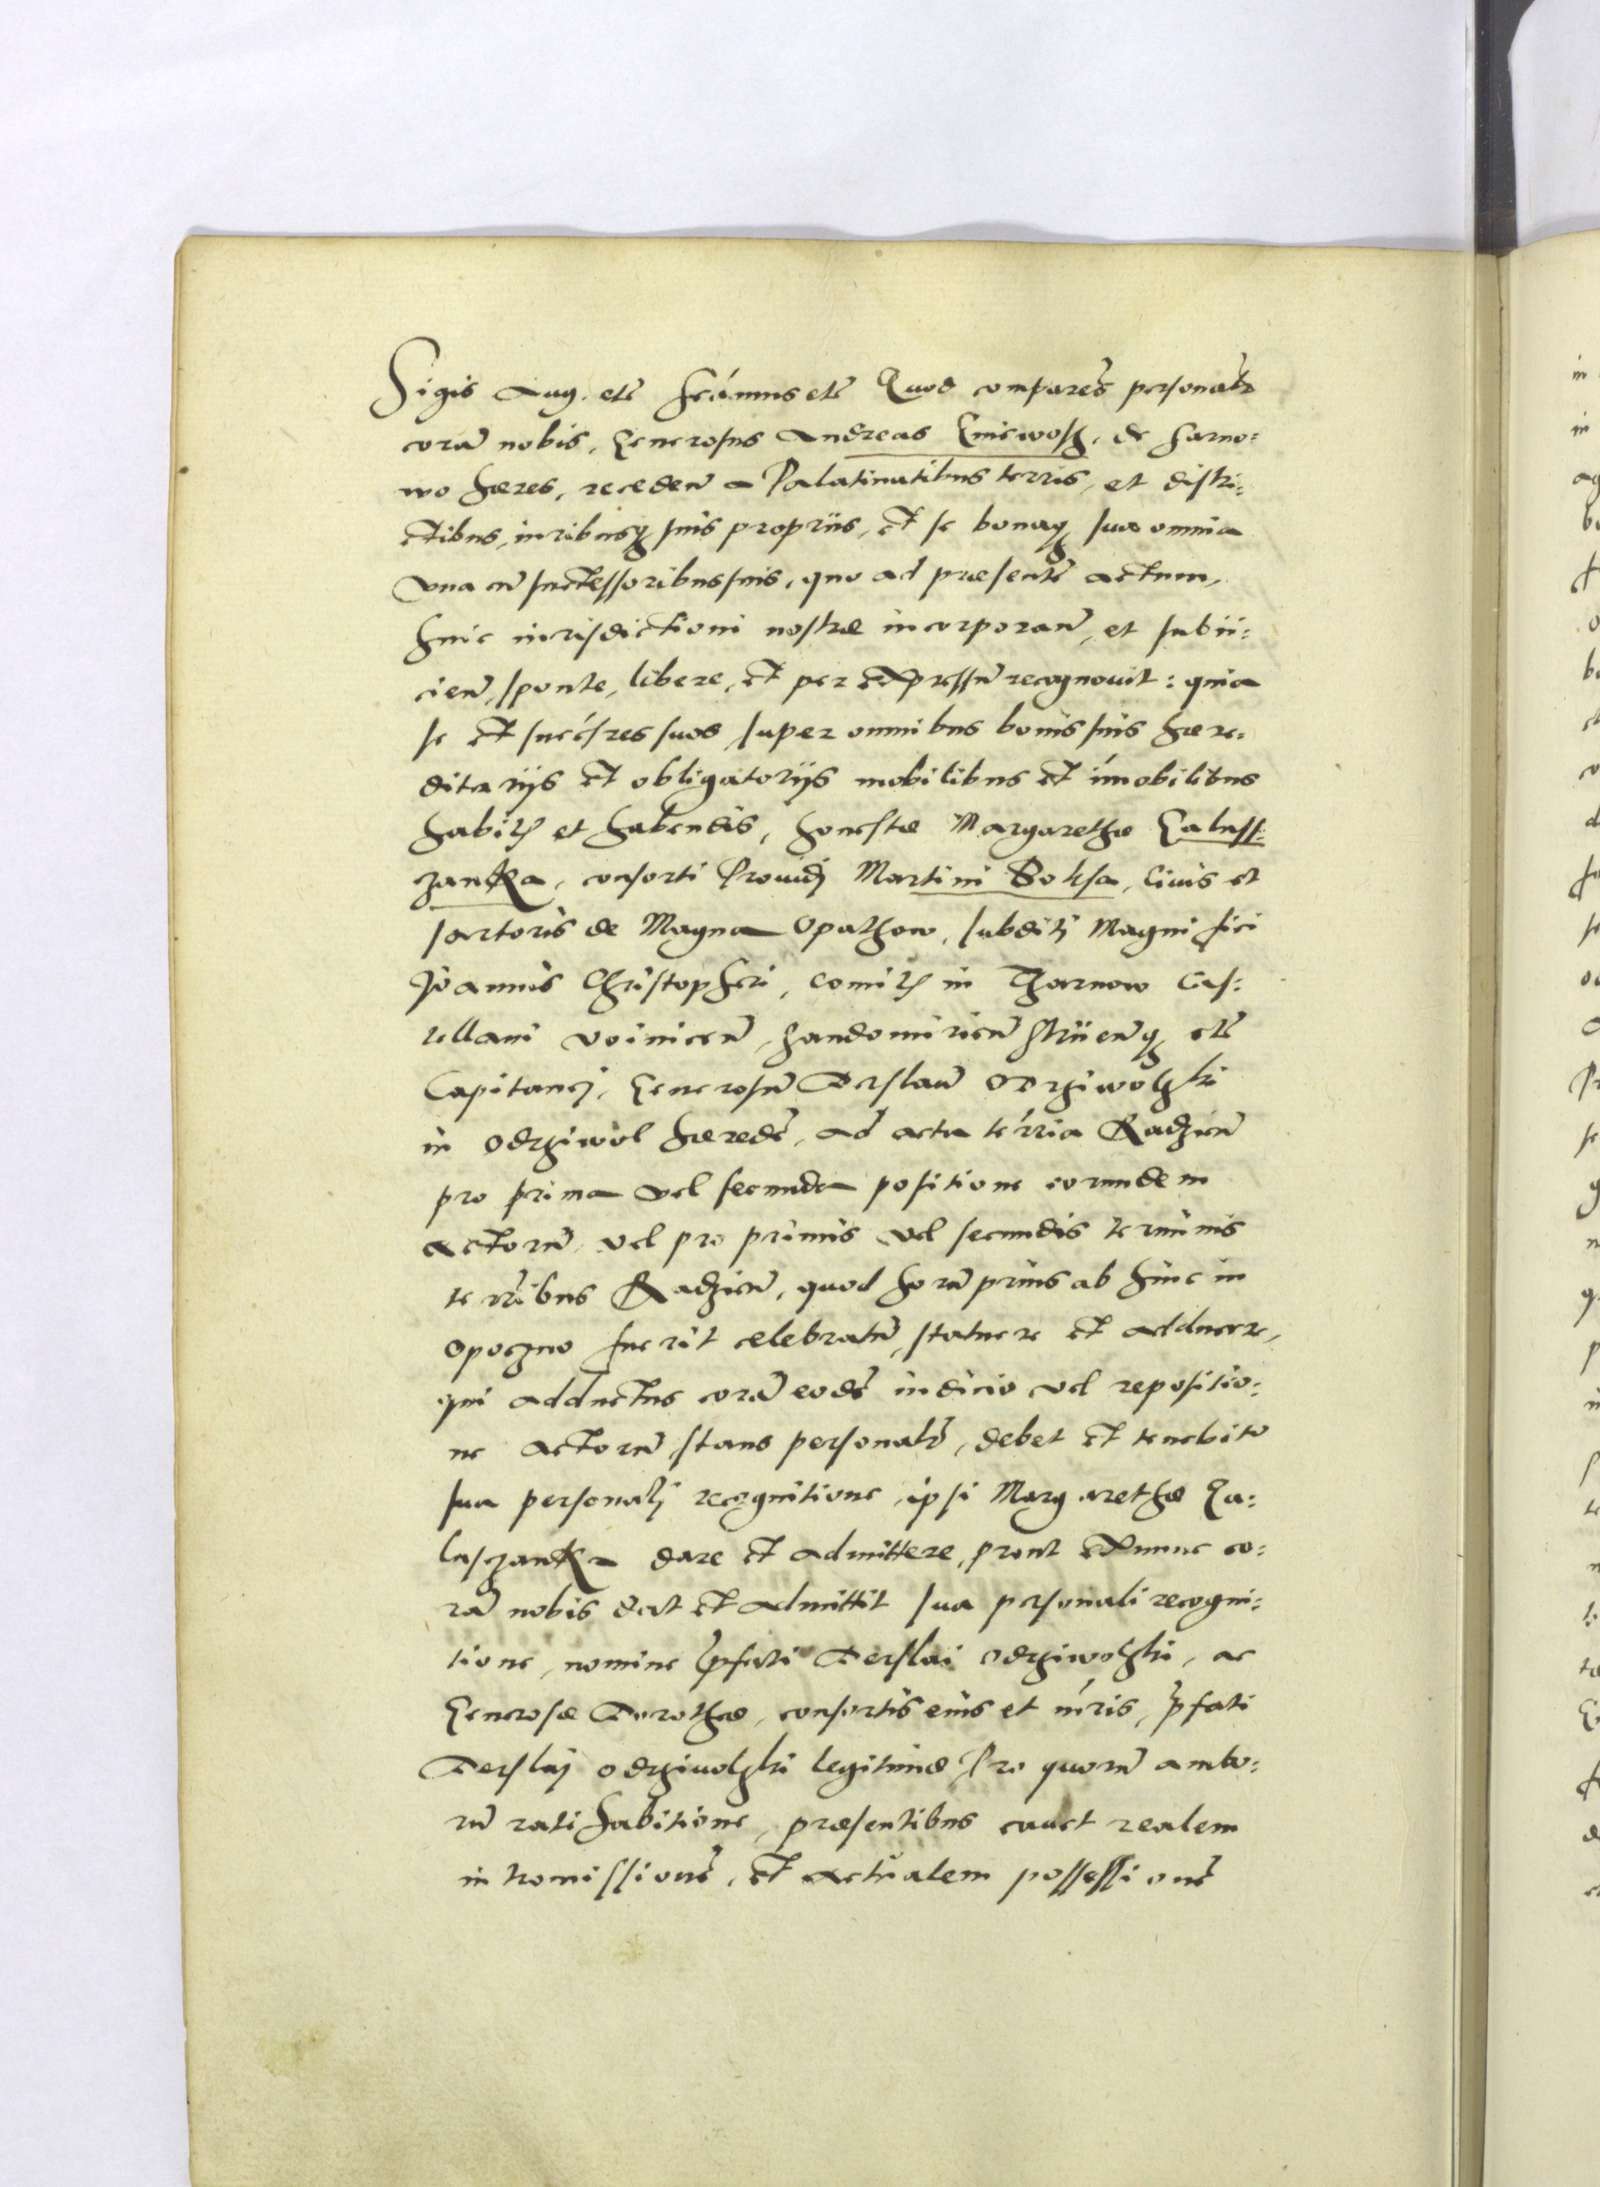 Sigis Aug. etc̃ scámus etc̃ Quod compareñs personalr̃
corā nobis, Generosus Andreas Gniewosz, de Sarno:
wo hæres, recedeñ a Palatinatibus terris, et distri:
ctibus, iuribusq; suis propriis, et se bonaq; sua omnia
vna cū successoribus suis, quo ad præsentē actum,
huic iurisdictioni nostræ incorporañ, et subii:
cieñ, sponte, libere, et per expressū recognouit: quia
se et succ̃res suos super omnibus bonis suis hære:
ditarijs et obligatorijs mobilibus et im̃obilibus
habitis et habendis, honestæ Margarethæ Galussz
zanka, consorti Prouidj Martini Boksa, Ciuis et
sartoris de Magna Opathow, subditj Magnifici
Joannis Christopheri, comitis in Tharnow Cas:
tellani Voiniceñ, Sandomirieñ Striieñq; etc̃
Capitanej, Generosū Derslaū Odrziwolski
in Odrziwol hæredē, ad acta terr̃ia Radzieñ
pro prima vel secunda positione eorundem
actorū, vel pro primis vel secundis terminis
terr̃ibus Radzieñ, quod horū prius ab hinc in
Opoczno fuerit celebratū, statuere et adducere,
qui adductus corā eodē iudicio vel repositio:
ne actorū stans personalr̃, debet et tenebitr
sua personalj recognitione, ipsi Margarethæ Ga:
luszanka dare et admittere, prout exnunc co:
rā nobis dat et admittit sua personali recogni:
tione, nomine p̃fati Derslai Odrziwolski, ac
Generosæ Dorothæ, consortis eius et m̃ris, p̃fati
Derslaj Odrziuolski legitimæ Pro quorū ambo:
rū ratihabitione, præsentibus cauet realem
intromissionē, et actualem possessionē